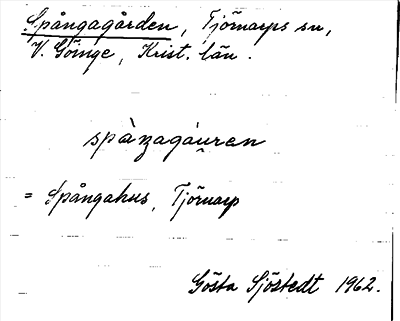 Spångagården, Tjörnarps sn,
V. Göinge, Krist. län.
spàŋagáu̯ren
= Spångahus, Tjörnarp
Gösta Sjöstedt 1962.